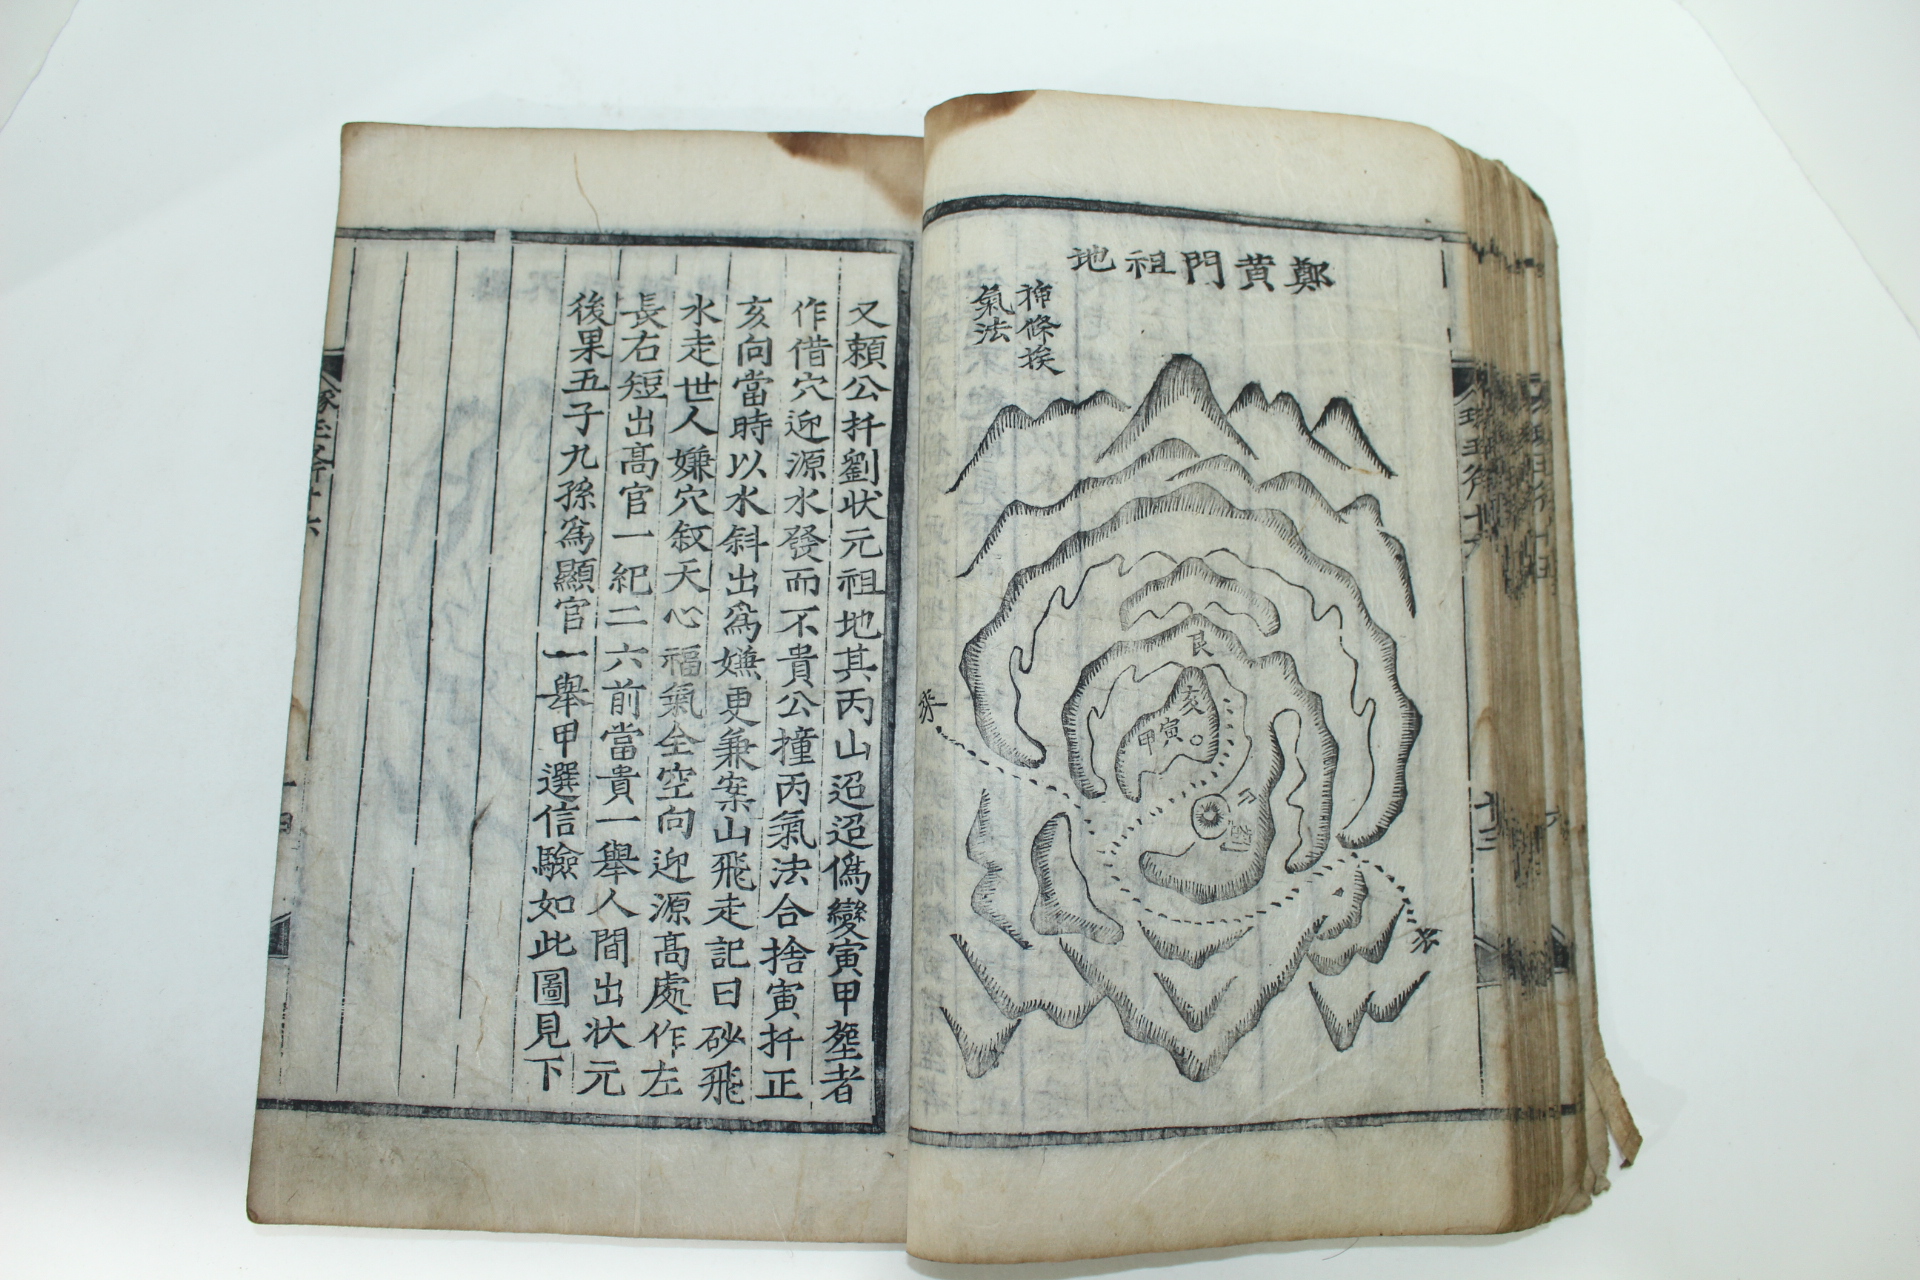 鄭黄門祖地
㧒條挨
氣法
艮
亥
寅
甲
水
又頼公扦劉状元祖地其丙山迢迢僞變寅甲塟者
作借穴迎源水發而不貴公撞丙氣法合捨寅扦正
亥向當時以水斜出爲嫌更兼案山飛走記曰砂飛
水走世人嫌穴叙天心福氣全空向迎源高處作左
長右短出高官一紀二六前當貴一舉人間出状元
後果五子九孫爲顯官一舉甲選信驗如此圖見下